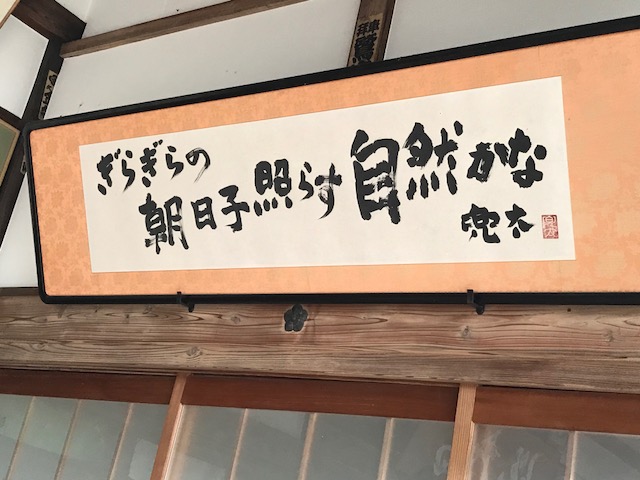 ぎらぎらの
朝日子照らす自然かな
兜太